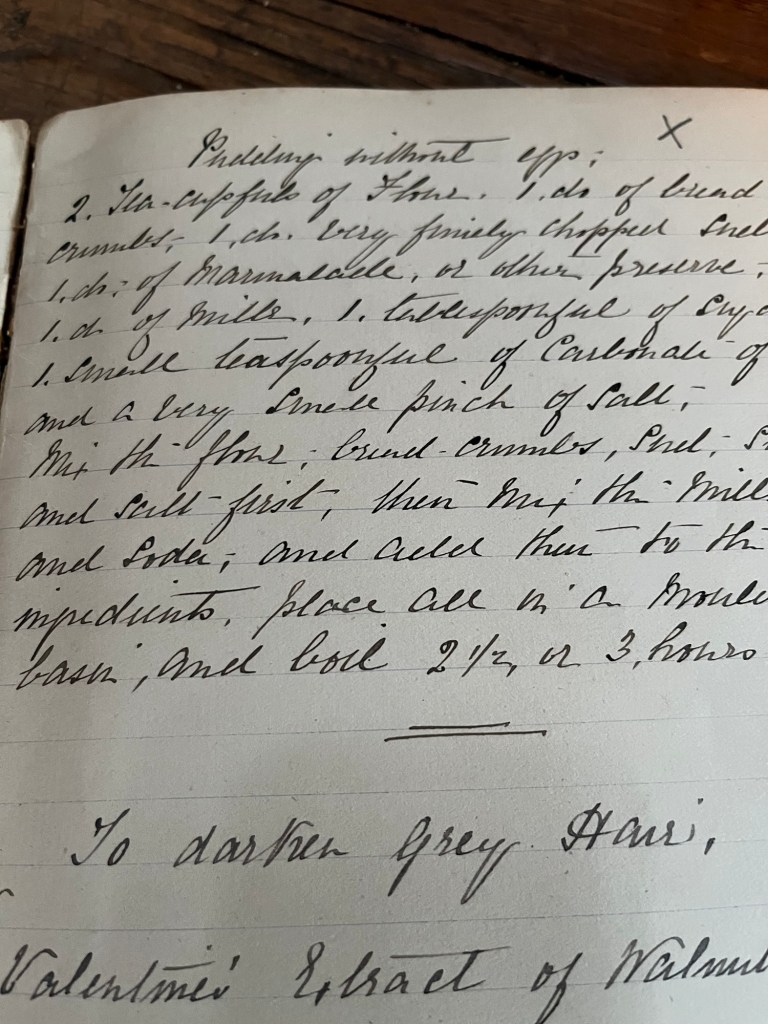 X
Pudding without eggs;
2. Tea-cupfuls of Flour. 1. do of bread
crumbs, 1. do. very finely chopped Suet
1. do; of Marmalade, or other preserve,
1. d. of Milk, 1. tablespoonful of Suga
1. small teaspoonful of Carbonate of
and a very small pinch of salt;
Mix the flour, bread-crumbs, Suet, S
and salt first, then mix the Milk
and Soda, and add them to the
ingredients. place all in a Mould
basin, and boil 2 1/2, or 3, hours
To darken Grey Hair,
Valentine's Extract of Walnut